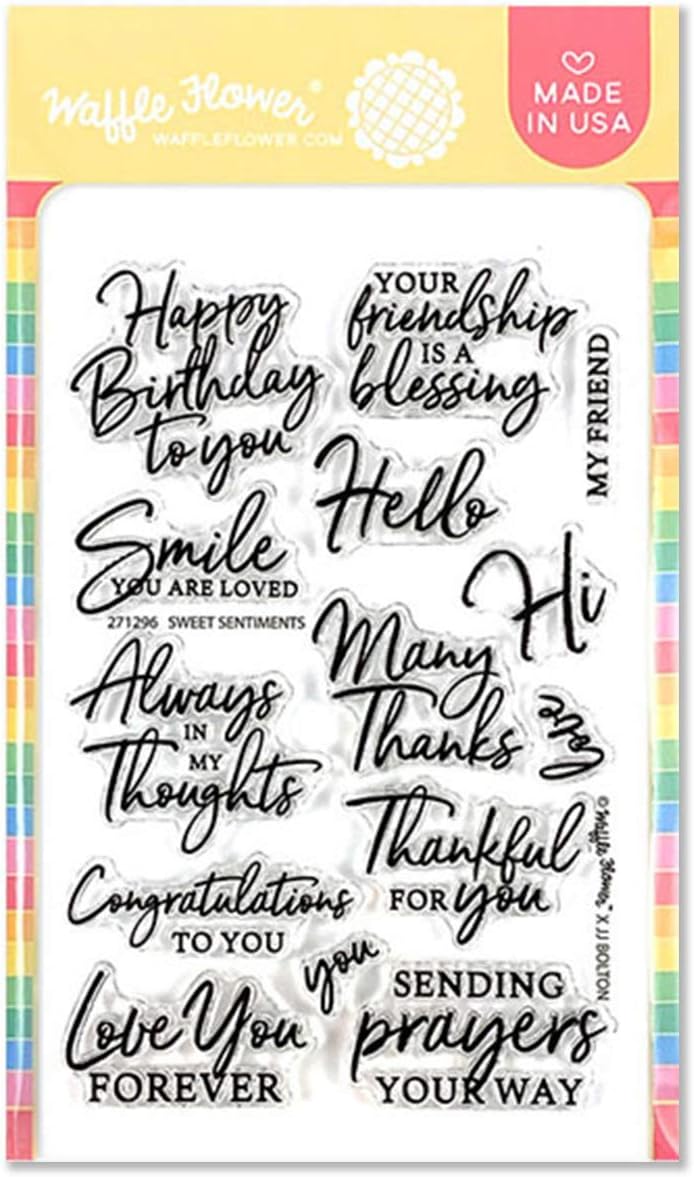 Waffle Flower®
WAFFLEFLOWER.COM
MADE
IN USA
Happy
Birthday
to you
YOUR
friendship
IS A
blessing
MY FRIEND
Hello
Smile
YOU ARE LOVED
271296 SWEET SENTIMENTS
Hi
Many
Thanks
love
Always
IN
MY
Thoughts
Thankful
FOR you
Congratulations
TO YOU
you
© Waffle Flower X JJ BOLTON
Love You
FOREVER
SENDING
prayers
YOUR WAY